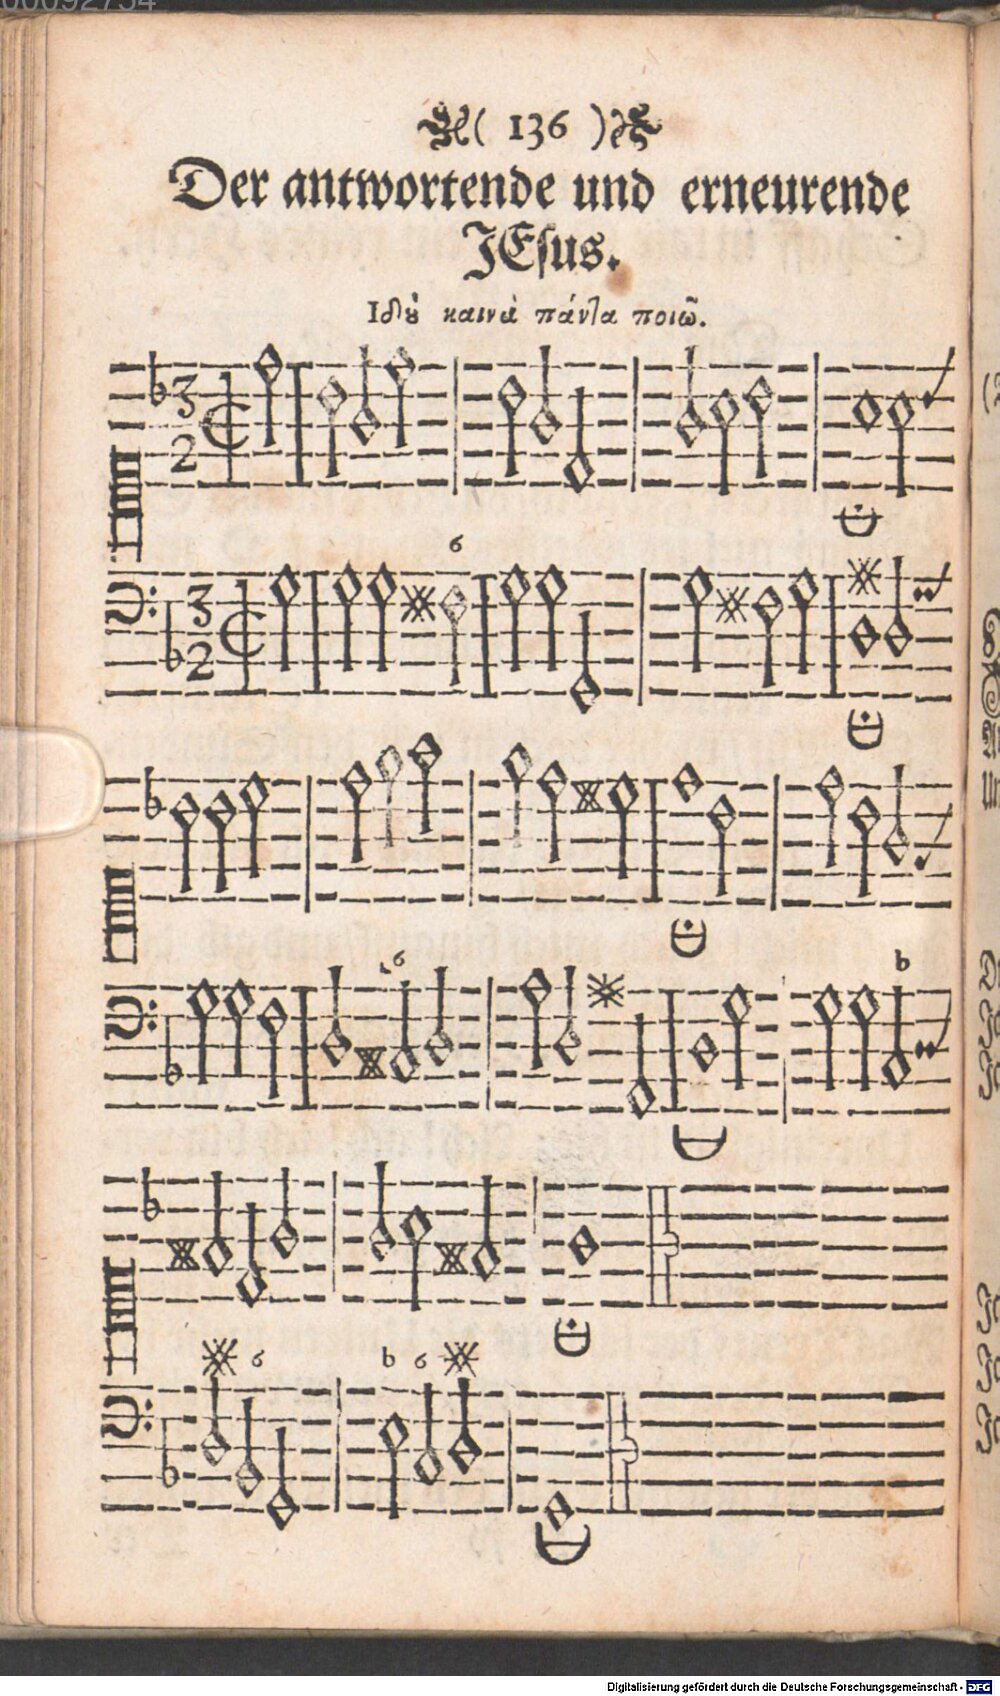 00092754
( 136 )
Der antwortende und erneurende
JEſus.
Ιδȣ̀ καινὰ πάντα ποιῶ.
3
2
6
3
2
6
b
6
b 6
Digitalisierung gefördert durch die Deutsche Forschungsgemeinschaft - DFG